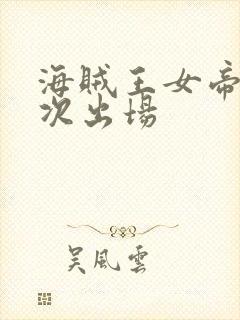 海賊王女帝
次出場
吴風雲